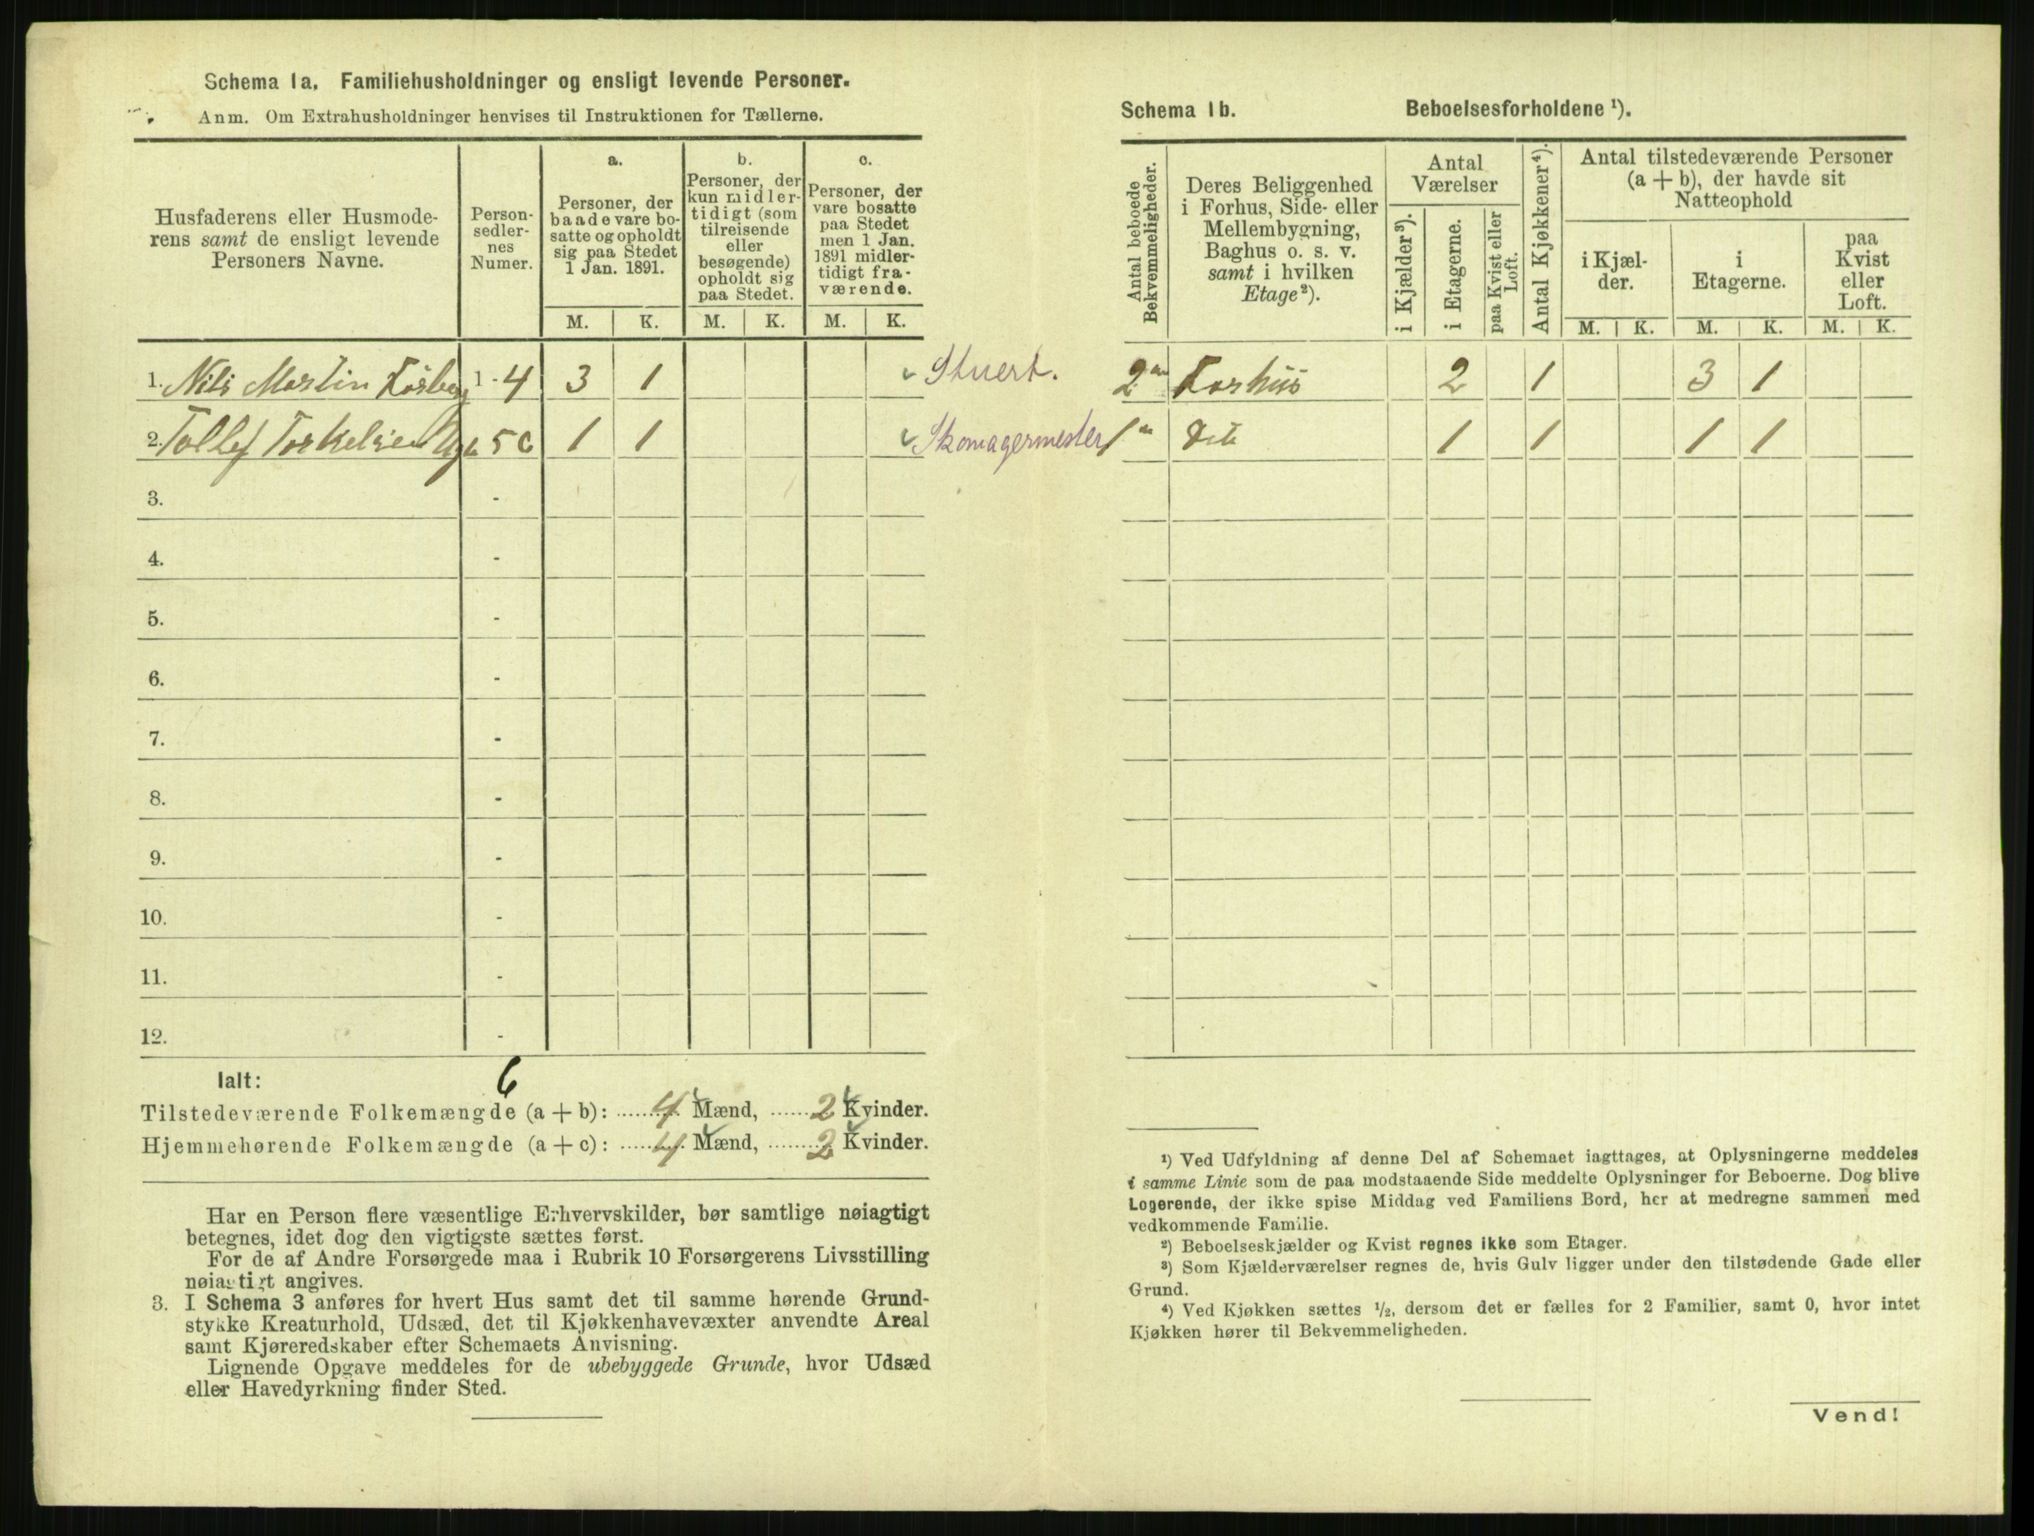 Schema 1a. Familiehusholdninger og ensligt levende Personer.
Anm. Om Extrahusholdninger henvises til Instruktionen for Tællerne.
Husfaderens eller Husmode-
rens samt de ensligt levende
Personers Navne.
Person-
sedler-
nes
Numer.
a.
Personer, der
baade vare bo-
satte og opholdt
sig paa Stedet
1 Jan. 1891.
b.
Personer, der
kun midler-
tidigt (som
tilreisende
eller
besøgende)
opholdt sig
paa Stedet.
c.
Personer, der
vare bosatte
paa Stedet
men 1 Jan.
1891 midler-
tidigt fra-
værende.
M. K. M. K. M. K.
1. Nils Martin 1 - 4 3 1 Stuert.
2. Tollef Torkelsen 5 6 1 1 Skomagermester
3. -
4. -
5. -
6. -
7. -
8. -
9. -
10. -
11. -
12. -
Ialt: 6
Tilstedeværende Folkemængde (a + b): 4 Mænd, 2 Kvinder.
Hjemmehørende Folkemængde (a + c): 4 Mænd, 2 Kvinder.
Har en Person flere væsentlige Erhvervskilder, bør samtlige nøiagtigt
betegnes, idet dog den vigtigste sættes først.
For de af Andre Forsørgede maa i Rubrik 10 Forsørgerens Livsstilling
nøiagtigt angives.
3. I Schema 3 anføres for hvert Hus samt det til samme hørende Grund-
stykke Kreaturhold, Udsæd, det til Kjøkkenhavevæxter anvendte Areal
samt Kjøreredskaber efter Schemaets Anvisning.
Lignende Opgave meddeles for de ubebyggede Grunde, hvor Udsæd
eller Havedyrkning finder Sted.
Schema 1b. Beboelsesforholdene ¹).
Antal beboede
Bekvemmeligheder.
Deres Beliggenhed
i Forhus, Side- eller
Mellembygning,
Baghus o. s. v.
samt i hvilken
Etage²).
Antal
Værelser
i Kjælder³).
i Etagerne.
paa Kvist eller
Loft.
Antal Kjøkkener⁴).
Antal tilstedeværende Personer
(a + b), der havde sit
Natteophold
i Kjæl-
der.
i
Etagerne.
paa
Kvist
eller
Loft.
M. K. M. K. M. K.
2 Forhus 2 1 3 1
1 1 1 1 1
¹) Ved Udfyldning af denne Del af Schemaet iagttages, at Oplysningerne meddeles
i samme Linie som de paa modstaaende Side meddelte Oplysninger for Beboerne. Dog blive
Logerende, der ikke spise Middag ved Familiens Bord, her at medregne sammen med
vedkommende Familie.
²) Beboelseskjælder og Kvist regnes ikke som Etager.
³) Som Kjælderværelser regnes de, hvis Gulv ligger under den tilstødende Gade eller
Grund.
⁴) Ved Kjøkken sættes ½, dersom det er fælles for 2 Familier, samt 0, hvor intet
Kjøkken hører til Bekvemmeligheden.
Vend!